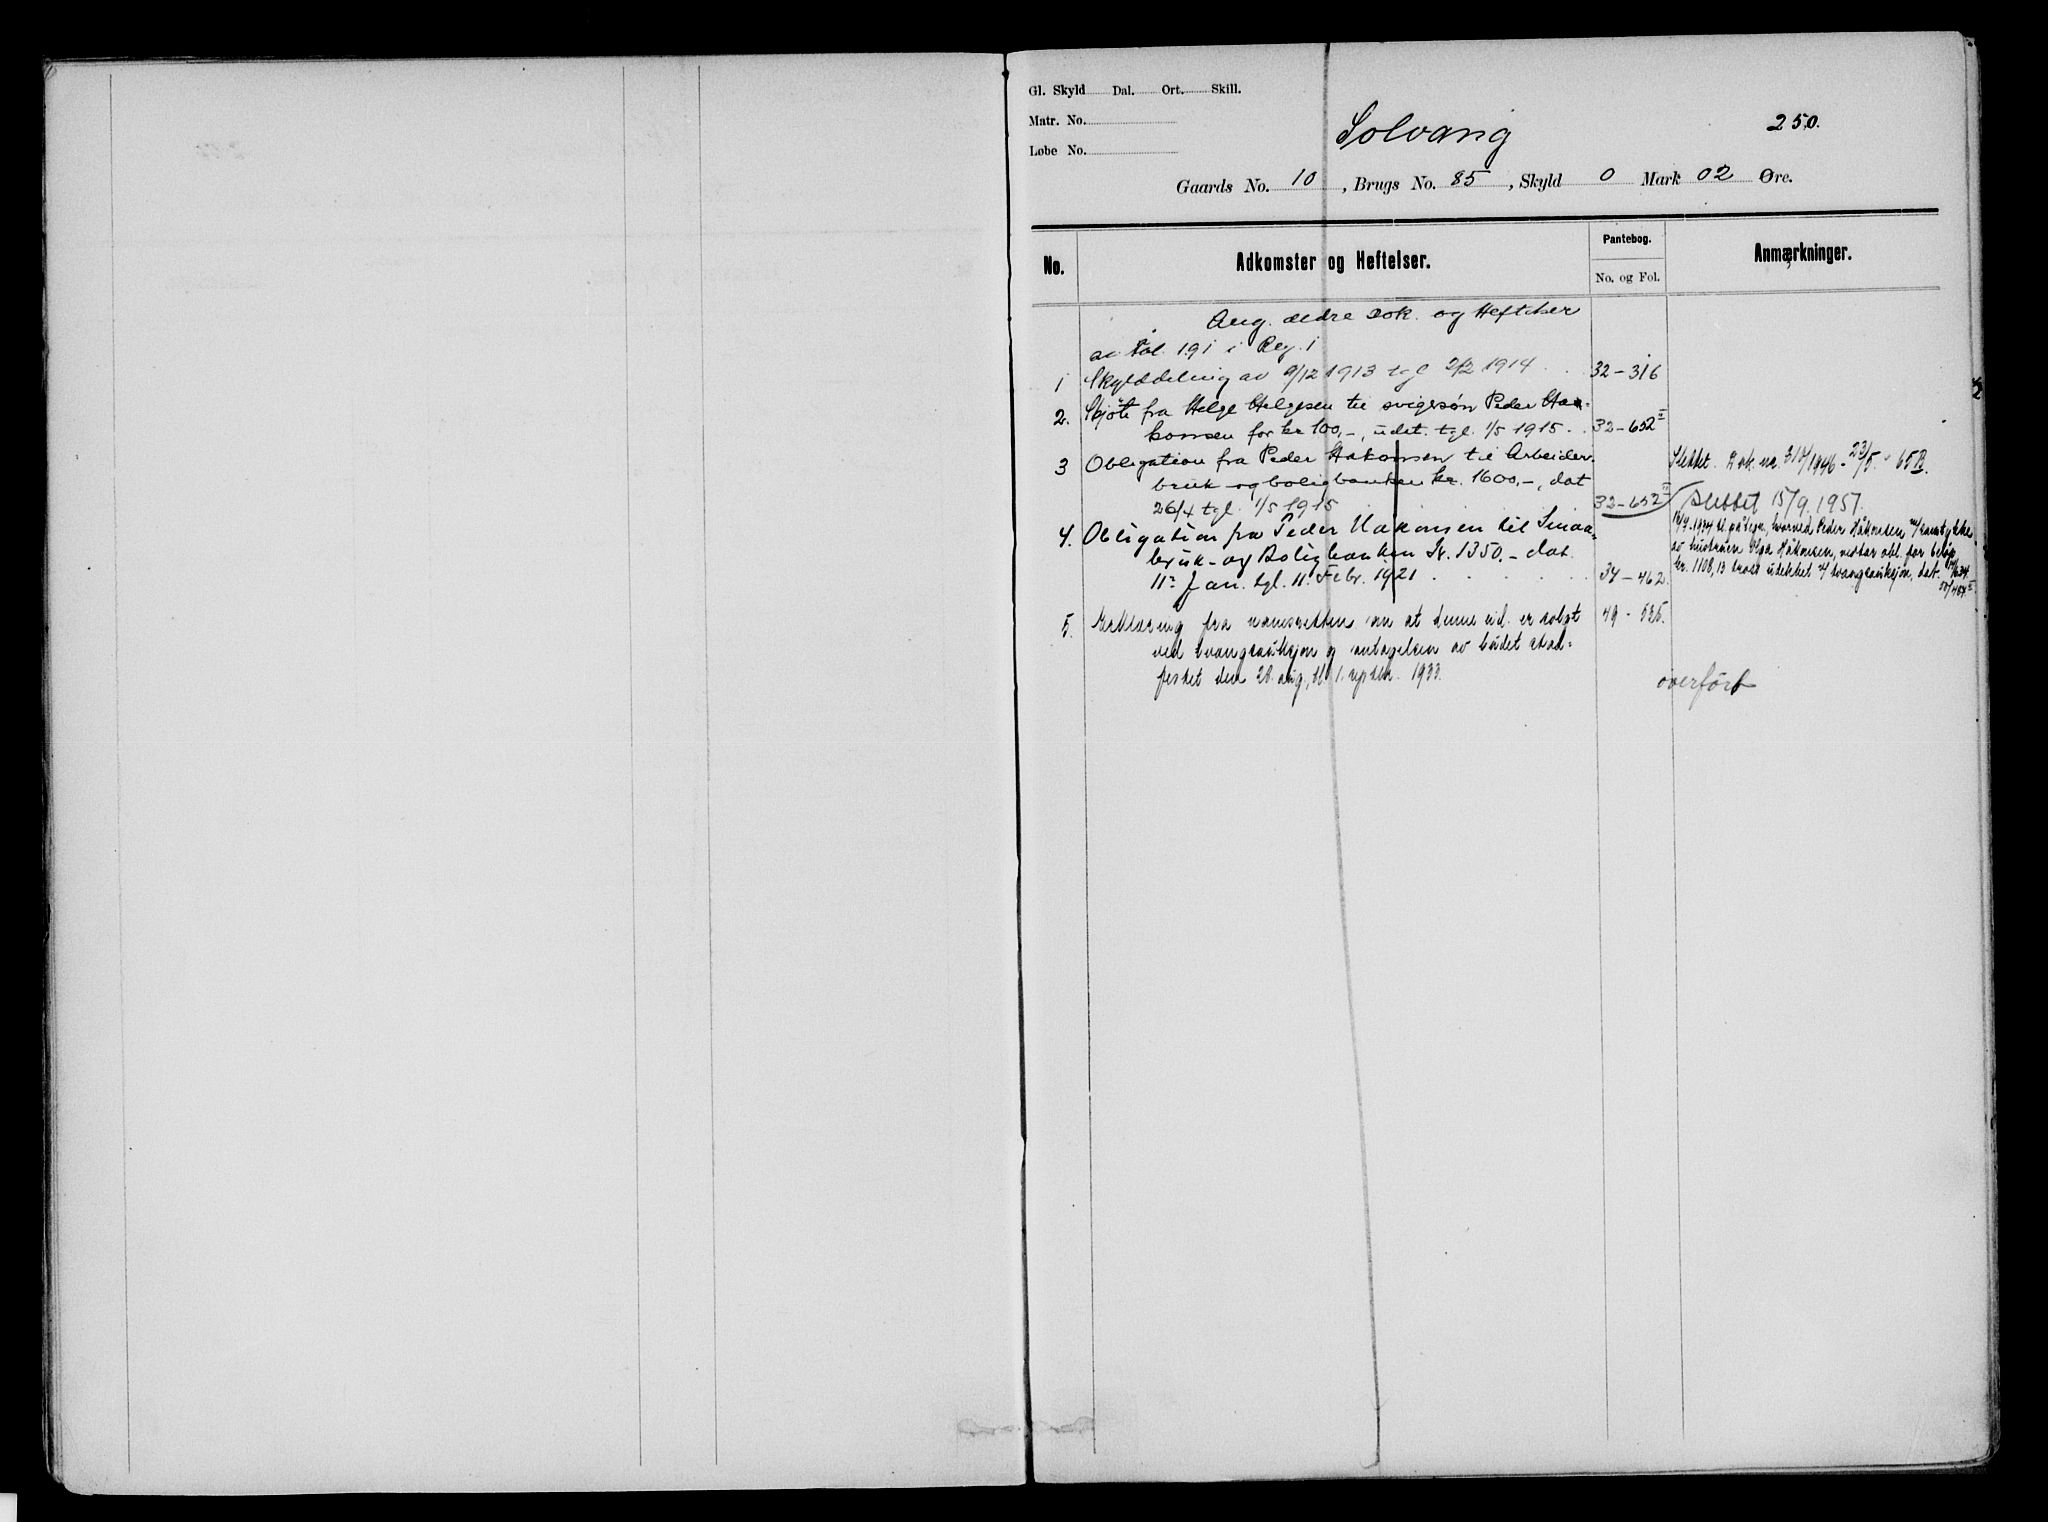 Gl. Skyld Dal. Ort. Skill.
Matr. No.
Løbe No.
Solvang
250.
Gaards No. 10, Brugs No. 85, Skyld 0 Mark 02 Øre.
No.
Adkomster og Heftelser.
Pantebog.
No. og Fol.
Anmærkninger.
Ang. ældre Dok. og Heftelser
se Fol. 191 i Reg. 1
1 Skylddeling av 9/12 1913 tgl 2/2 1914 32-316
2. Skjöte fra Helge Helgesen til svigersøn Peder Haa-
konsen for kr 100,-, udst. tgl. 1/5 1915. 32-652 II
3 Obligation fra Peder Hakonsen til Arbeider-
bruk- og boligbanken kr. 1600,-, dat
26/4 tgl. 1/5 1915 32-652 II
Slettet. Dok. nr. 310/1946 - 23/5. 65 B.
Slettet 15/9.1951.
4. Obligation fra Peder Hakonsen til Smaa-
bruk- og Boligbanken Kr. 1350.- dat.
11. Jan. tgl. 11. Febr. 1921 34-462.
tl. påtegn., hvorved Peder Håkonsen m/ samtykke
av hustruen Olga Håkonsen, vedtar obl. for beløp
kr. 1108,13 trods utslettet v/ tvangsauksjon, dat.
5. Erklæring fra namsretten om at denne eid. er solgt 49-525.
ved tvangsauksjon og antagelsen av budet stad-
festet den 28. aug., tl. 1. septbr. 1933.
overført